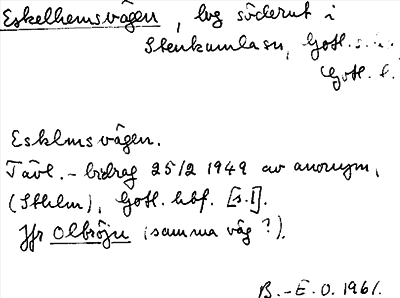 Eskelhemsvägen, lvg söderut i
Stenkumlasn, Gotl. s. 
Gotl. l.
Esklmsvägen.
Tävl.-bidrag 25/2 1949 av anonym,
(Sthlm), Gotl. hbf. [s.1].
Jfr Olbröju (samma väg?).
B.-E.O. 1961.